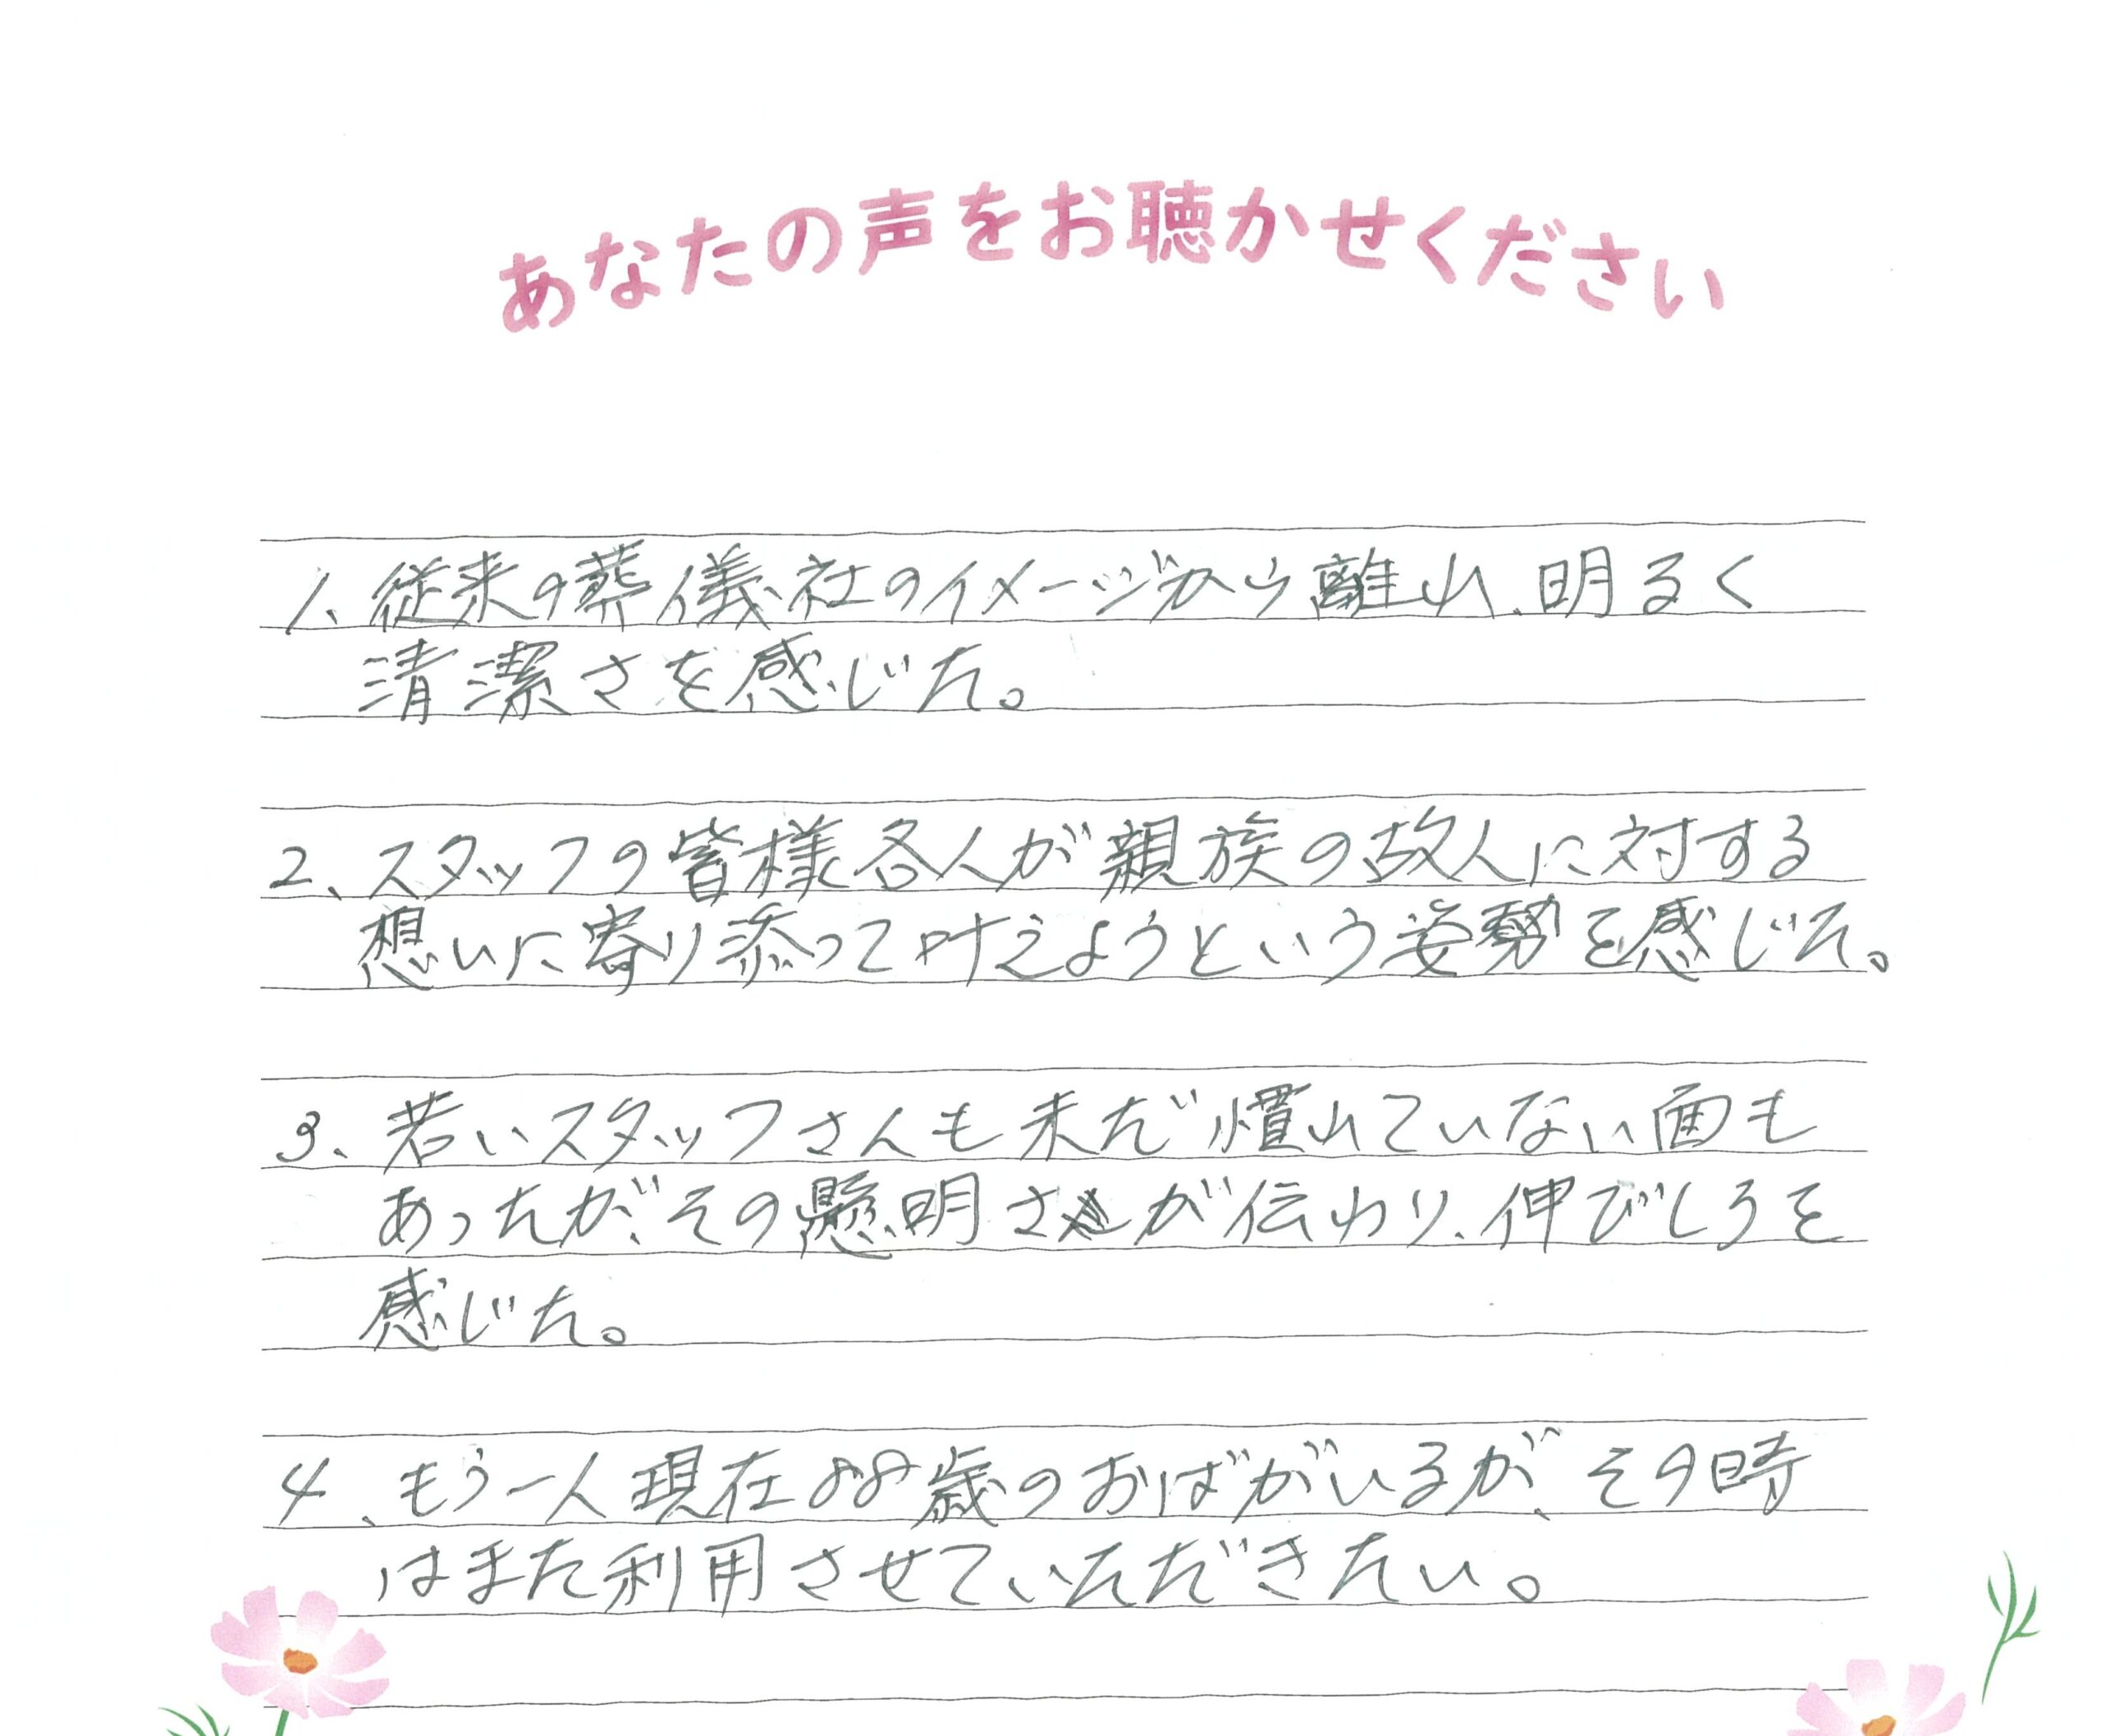 あなたの声をお聴かせください
1、従来の葬儀社のイメージから離れ、明るく
清潔さを感じた。
2、スタッフの皆様各人が親族の故人に対する
想いに寄り添って叶えようという姿勢を感じた。
3、若いスタッフさんも未だ慣れていない面も
あったが、その懸明さが伝わり、伸びしろを
感じた。
4、もう一人現在88歳のおばがいるが、その時
はまた利用させていただきたい。